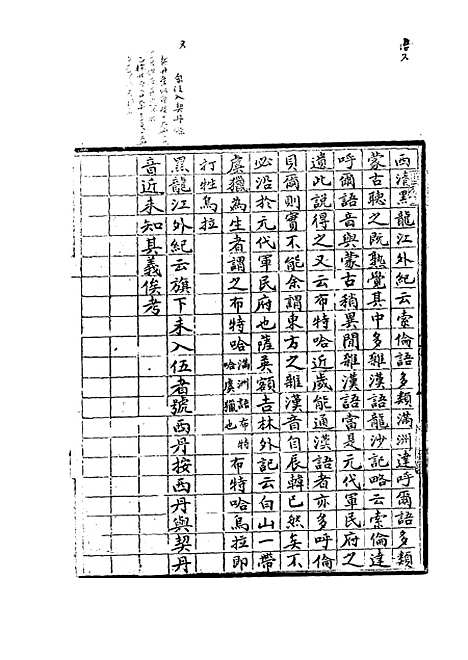 西清黑龍江外紀云索倫語多類滿洲達呼爾語多類
蒙古聽之既熟覺其中多雜漢語龍沙記略云索倫達
呼爾語音與蒙古稍異間雜漢語當是元代軍民府之
遺此說得之又云布特哈近歲能通漢語者亦多呼倫
貝爾則實不能余謂東方之雜漢音自辰韓已然矣不
必沿於元代軍民府也薩英額吉林外記云白山一帶
虞獵為生者謂之布特哈滿洲語布特哈虞獵也布特哈烏拉即
打牲烏拉
黑龍江外紀云旗下未入伍者號西丹按西丹與契丹
音近未知其義俟考